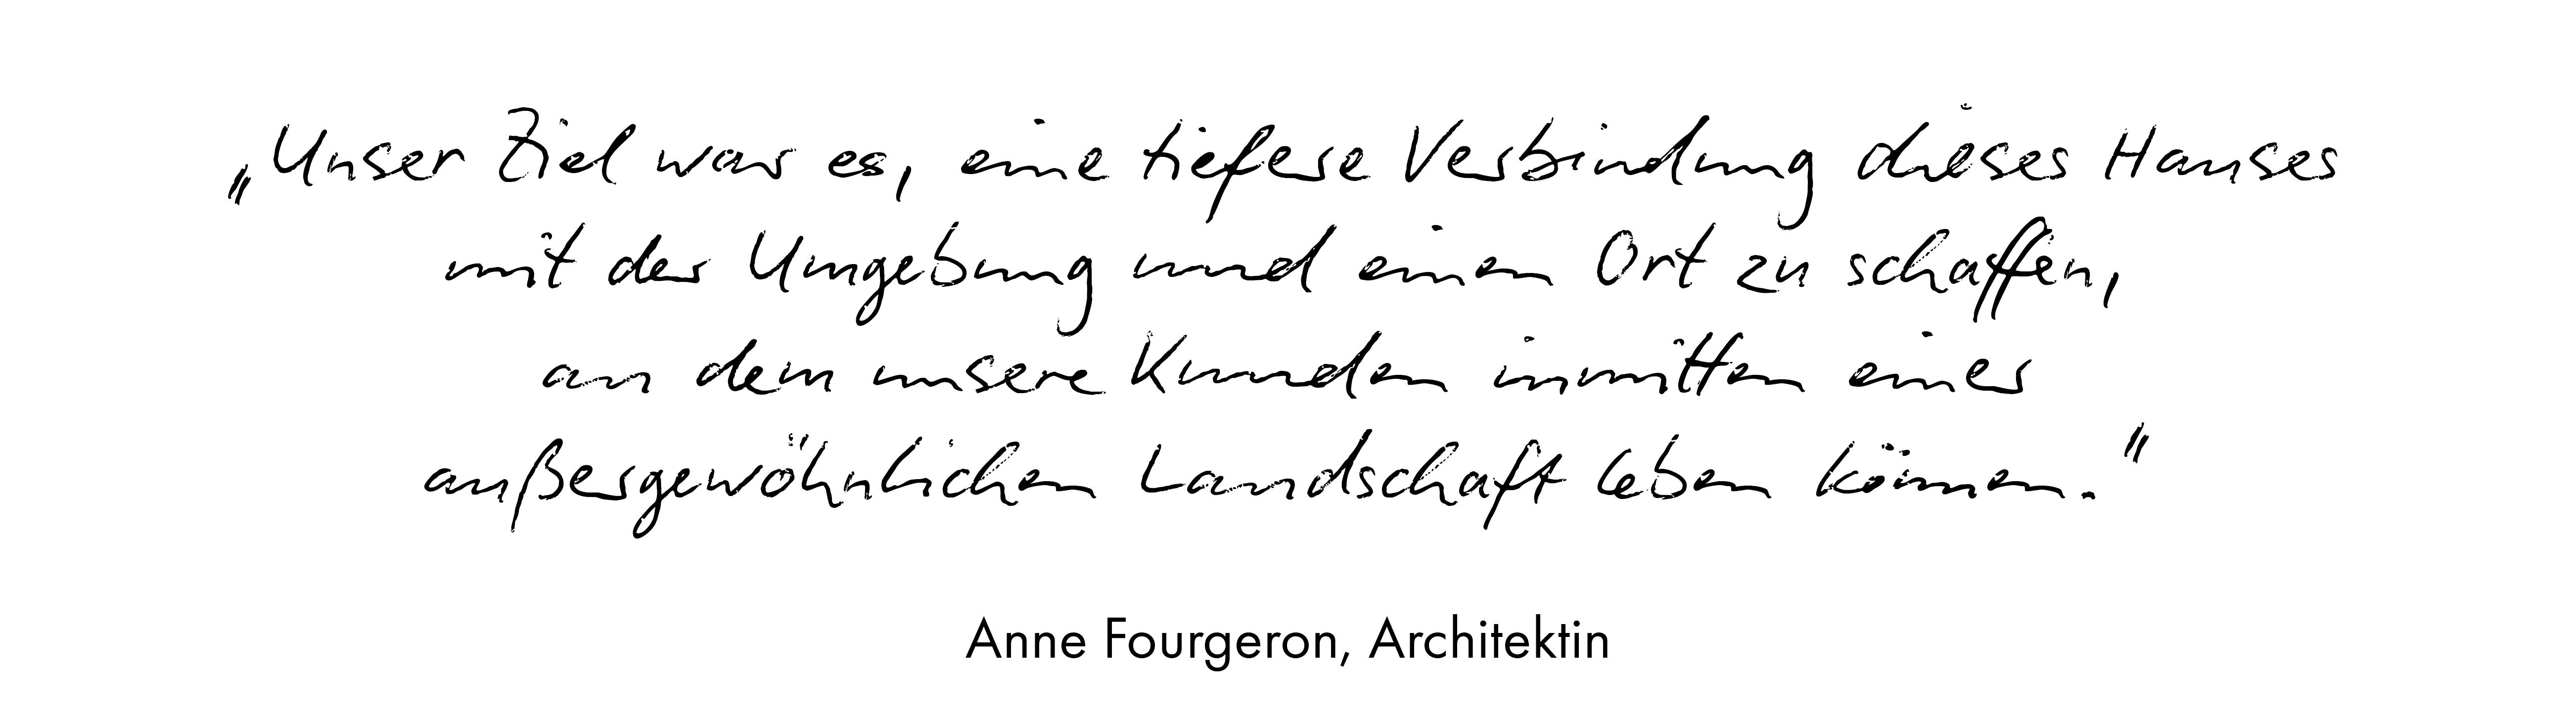 „Unser Ziel war es, eine tiefere Verbindung dieses Hauses
mit der Umgebung und einen Ort zu schaffen,
an dem unsere Kunden inmitten einer
außergewöhnlichen Landschaft leben können."
Anne Fourgeron, Architektin